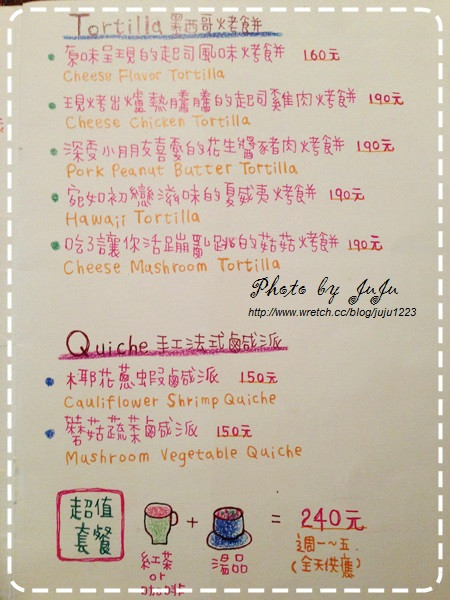 Tortilla 墨西哥烤餅
原味呈現的起司風味烤餅 160元
Cheese Flavor Tortilla
現烤出爐熱騰騰的起司雞肉烤餅 190元
Cheese Chicken Tortilla
深受小朋友喜愛的花生醬豬肉烤餅 190元
Pork Peanut Butter Tortilla
宛如初戀滋味的夏威夷烤餅 190元
Hawaii Tortilla
吃了讓你活蹦亂跳的菇菇烤餅 190元
Cheese Mushroom Tortilla
Photo by JuJu
http://www.wretch.cc/blog/juju1223
Quiche 手工法式鹹派
椰花蔥蝦鹹派 150元
Cauliflower Shrimp Quiche
蘑菇蔬菜鹹派 150元
Mushroom Vegetable Quiche
超值
套餐
+ = 240元
紅茶 湯品 週一~五
or (全天供應)
咖啡